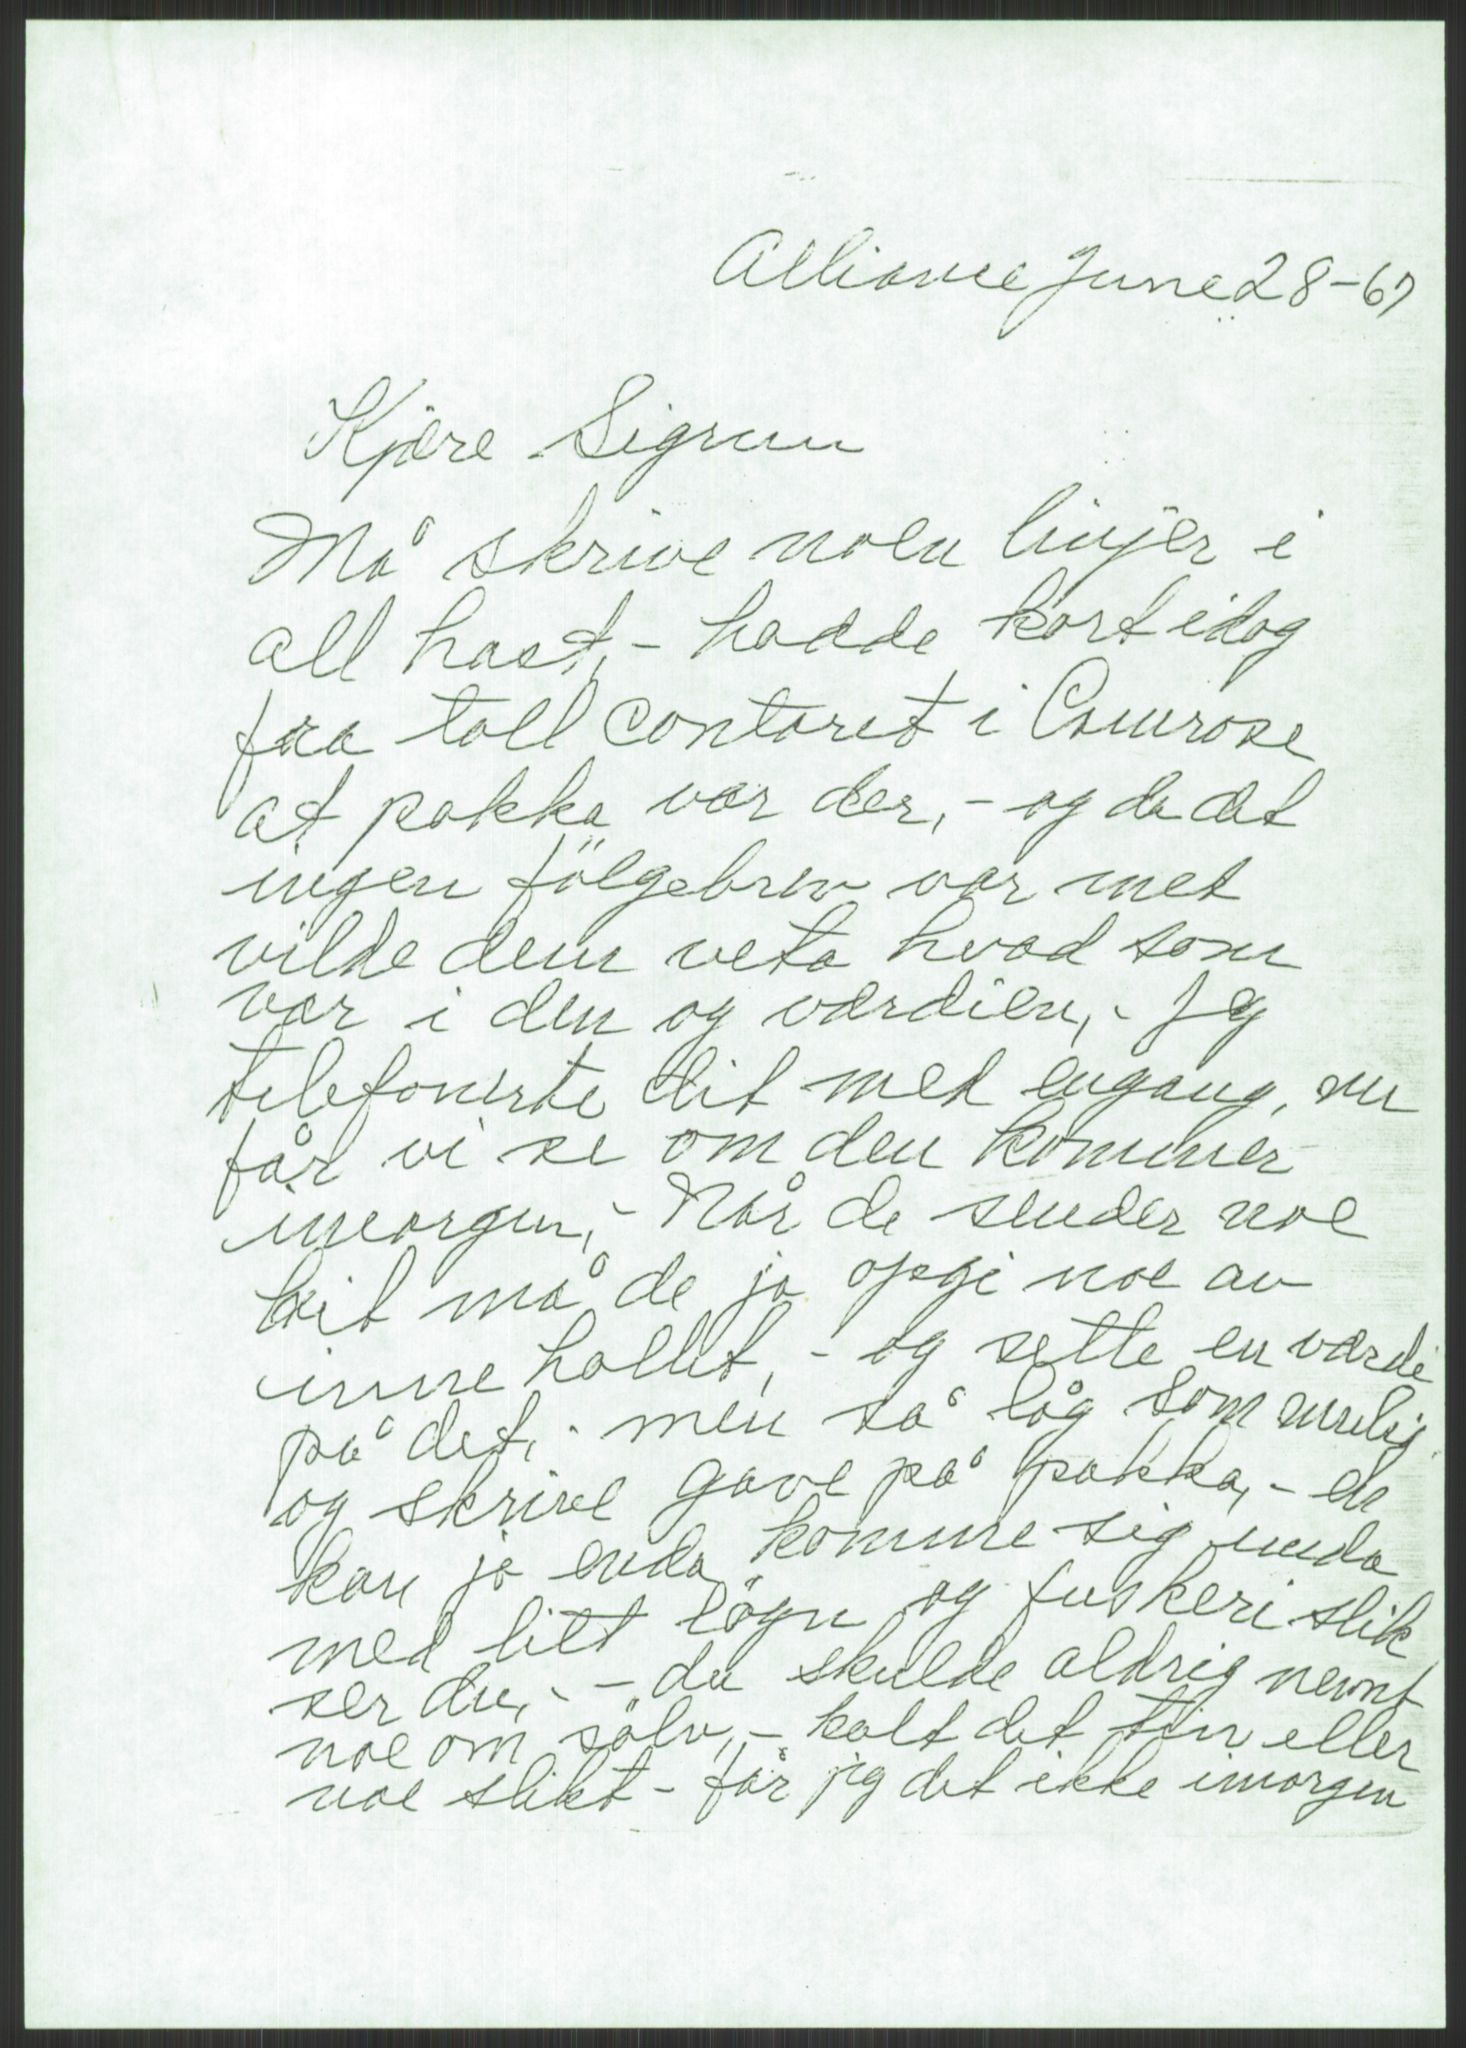 Alliance June 28-67
Kjære Sigrun
Må skrive noen linjer i
all hast, - hadde kort idag
fra toll contoret i Camrose
at pakka var der, - og da det
ingen fölgebrev var met
vilde dem veta hvad som
var i den og værdien, - Jeg
telefonerte dit med engang, nu
får vi se om den kommer
imorgen, - Når de sender noe
hit må de jo opgi noe av
inne hollet, - og sette en værdi
på det, - men så låg som mulig
og skrive gave på pakka, - en
kan jo enda komme sig unda
med litt lögn og fuskeri slik
ser du, - - du skulde aldrig nevnt
noe om sölv, - kalt det tin eller
noe slikt - får jeg det ikke imorgen